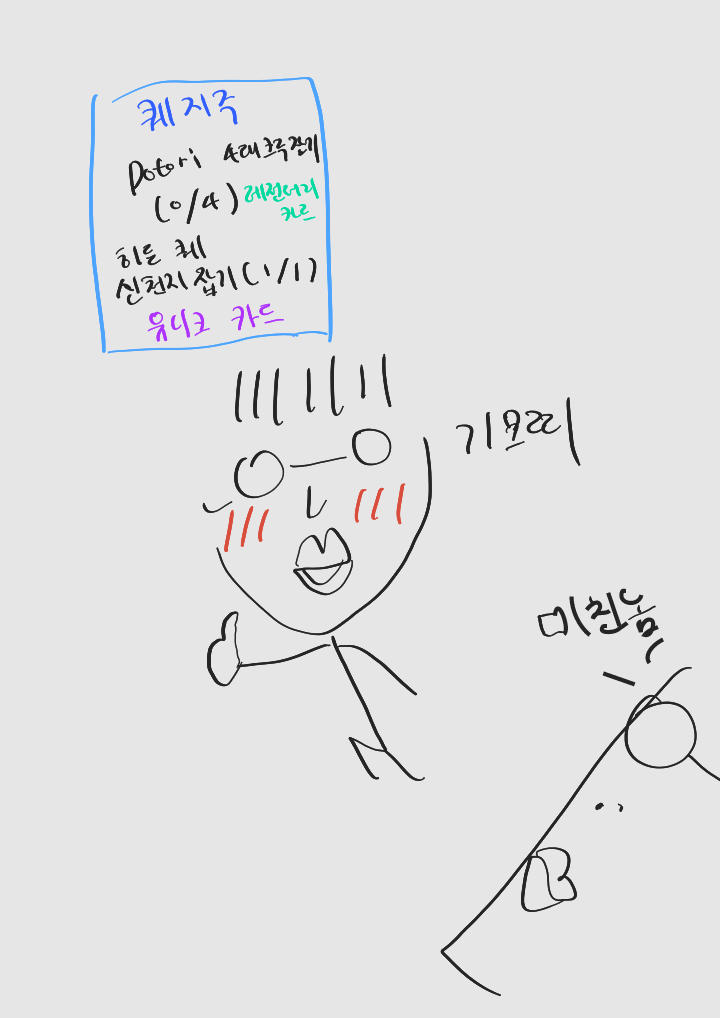 퀘지국
Dotori 4래크룩잔기
(0/4) 레전더리
카르
히든 퀘
신천지 잡기(1/1)
유니크 카드
기모띠
미친놈